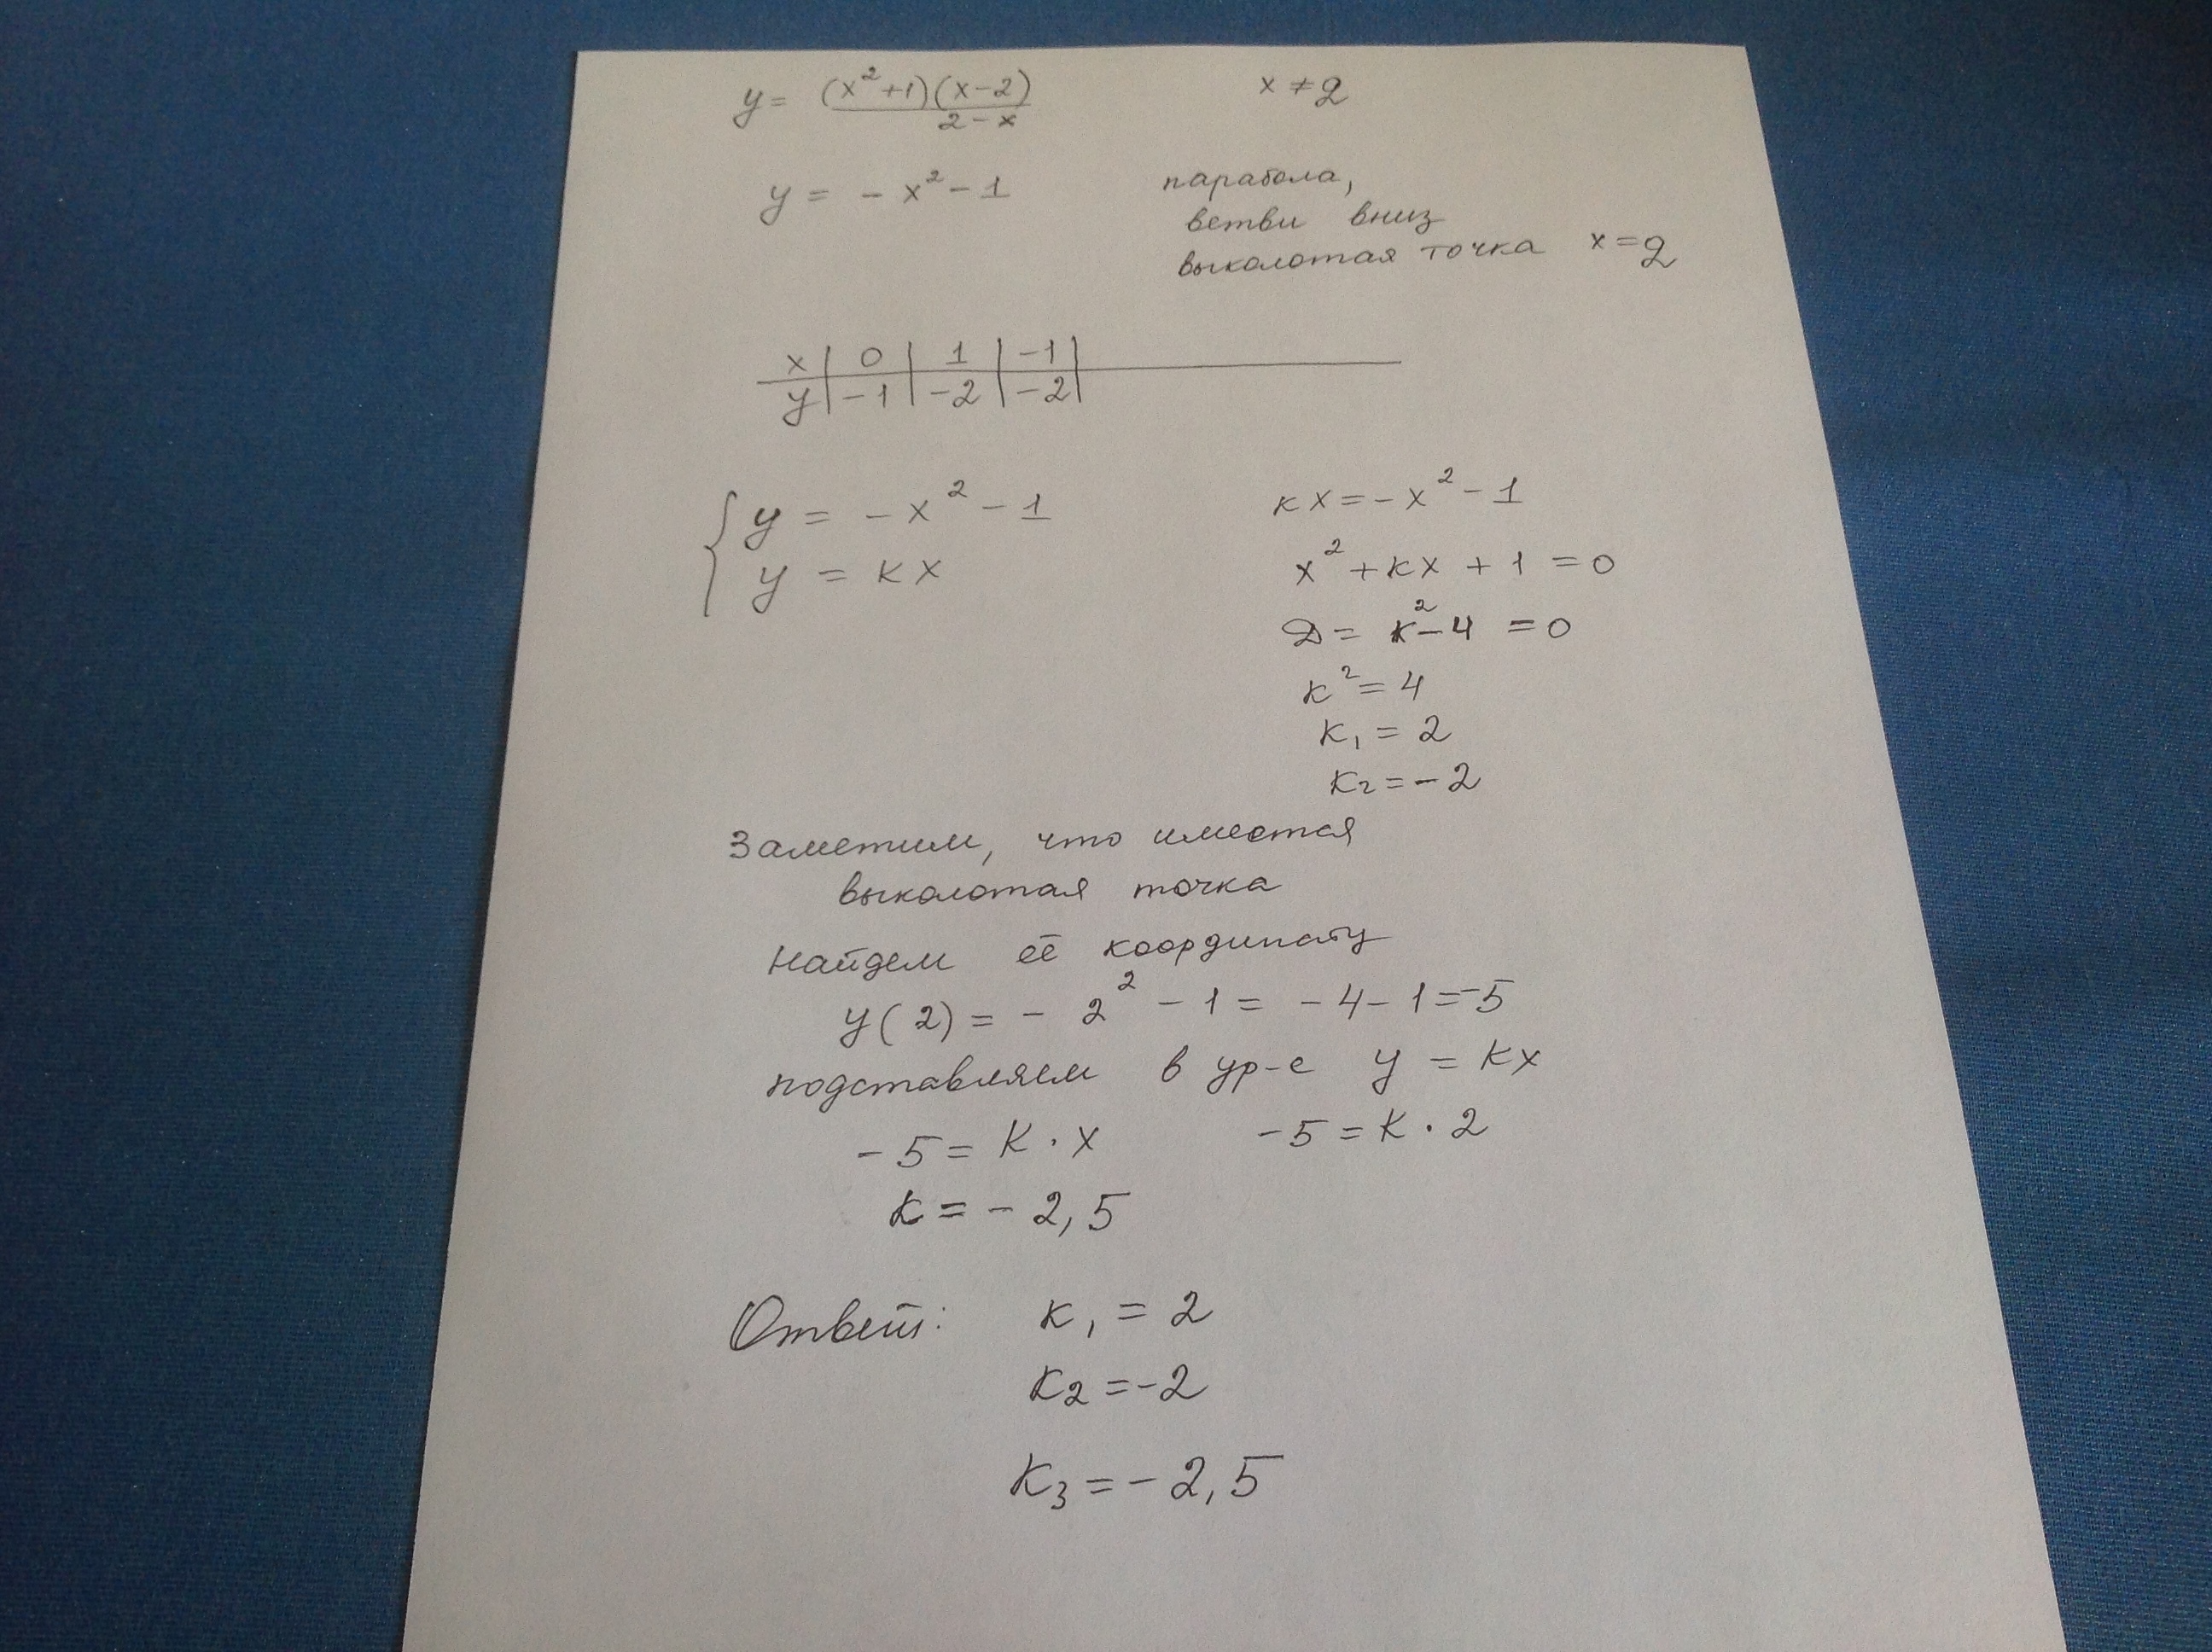 y = (x²+1)(x-2) / 2-x    x ≠ 2
y = - x² - 1    парабола,
ветви вниз
выколотая точка x = 2
x | 0 | 1 | -1 |
y | -1 | -2 | -2 |
{ y = - x² - 1    кx = - x² - 1
y = кx    x² + кx + 1 = 0
D = к² - 4 = 0
к² = 4
к₁ = 2
к₂ = - 2
Заметим, что имеется
выколотая точка
Найдем её координату
y(2) = - 2² - 1 = - 4 - 1 = -5
подставляем в ур-е y = кx
- 5 = к · x    - 5 = к · 2
к = - 2,5
Ответ: к₁ = 2
к₂ = -2
к₃ = - 2,5